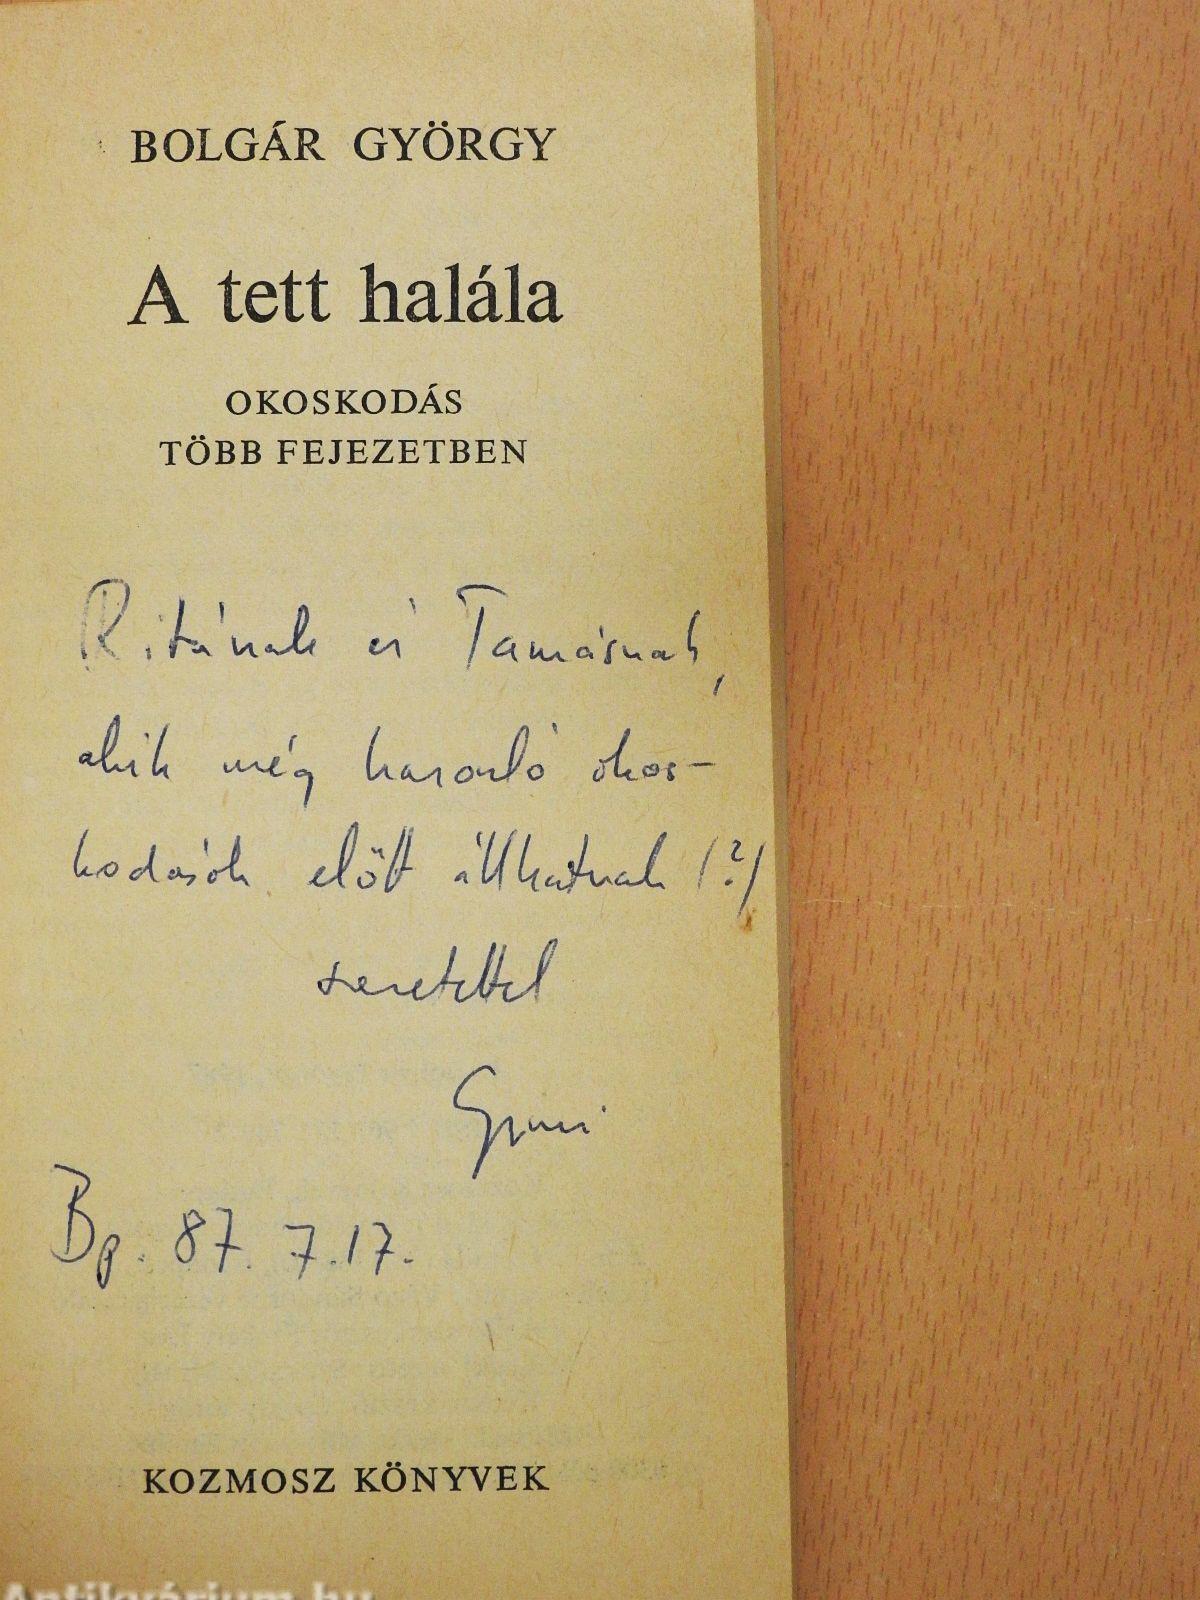 BOLGÁR GYÖRGY
A tett halála
OKOSKODÁS
TÖBB FEJEZETBEN
Ritának és Tamásnak,
akik még hasonló okos-
kodások előtt állhatnak (?)
szeretettel
Gyuri
Bp. 87. 7.17.
KOZMOSZ KÖNYVEK
Antikvárium.hu